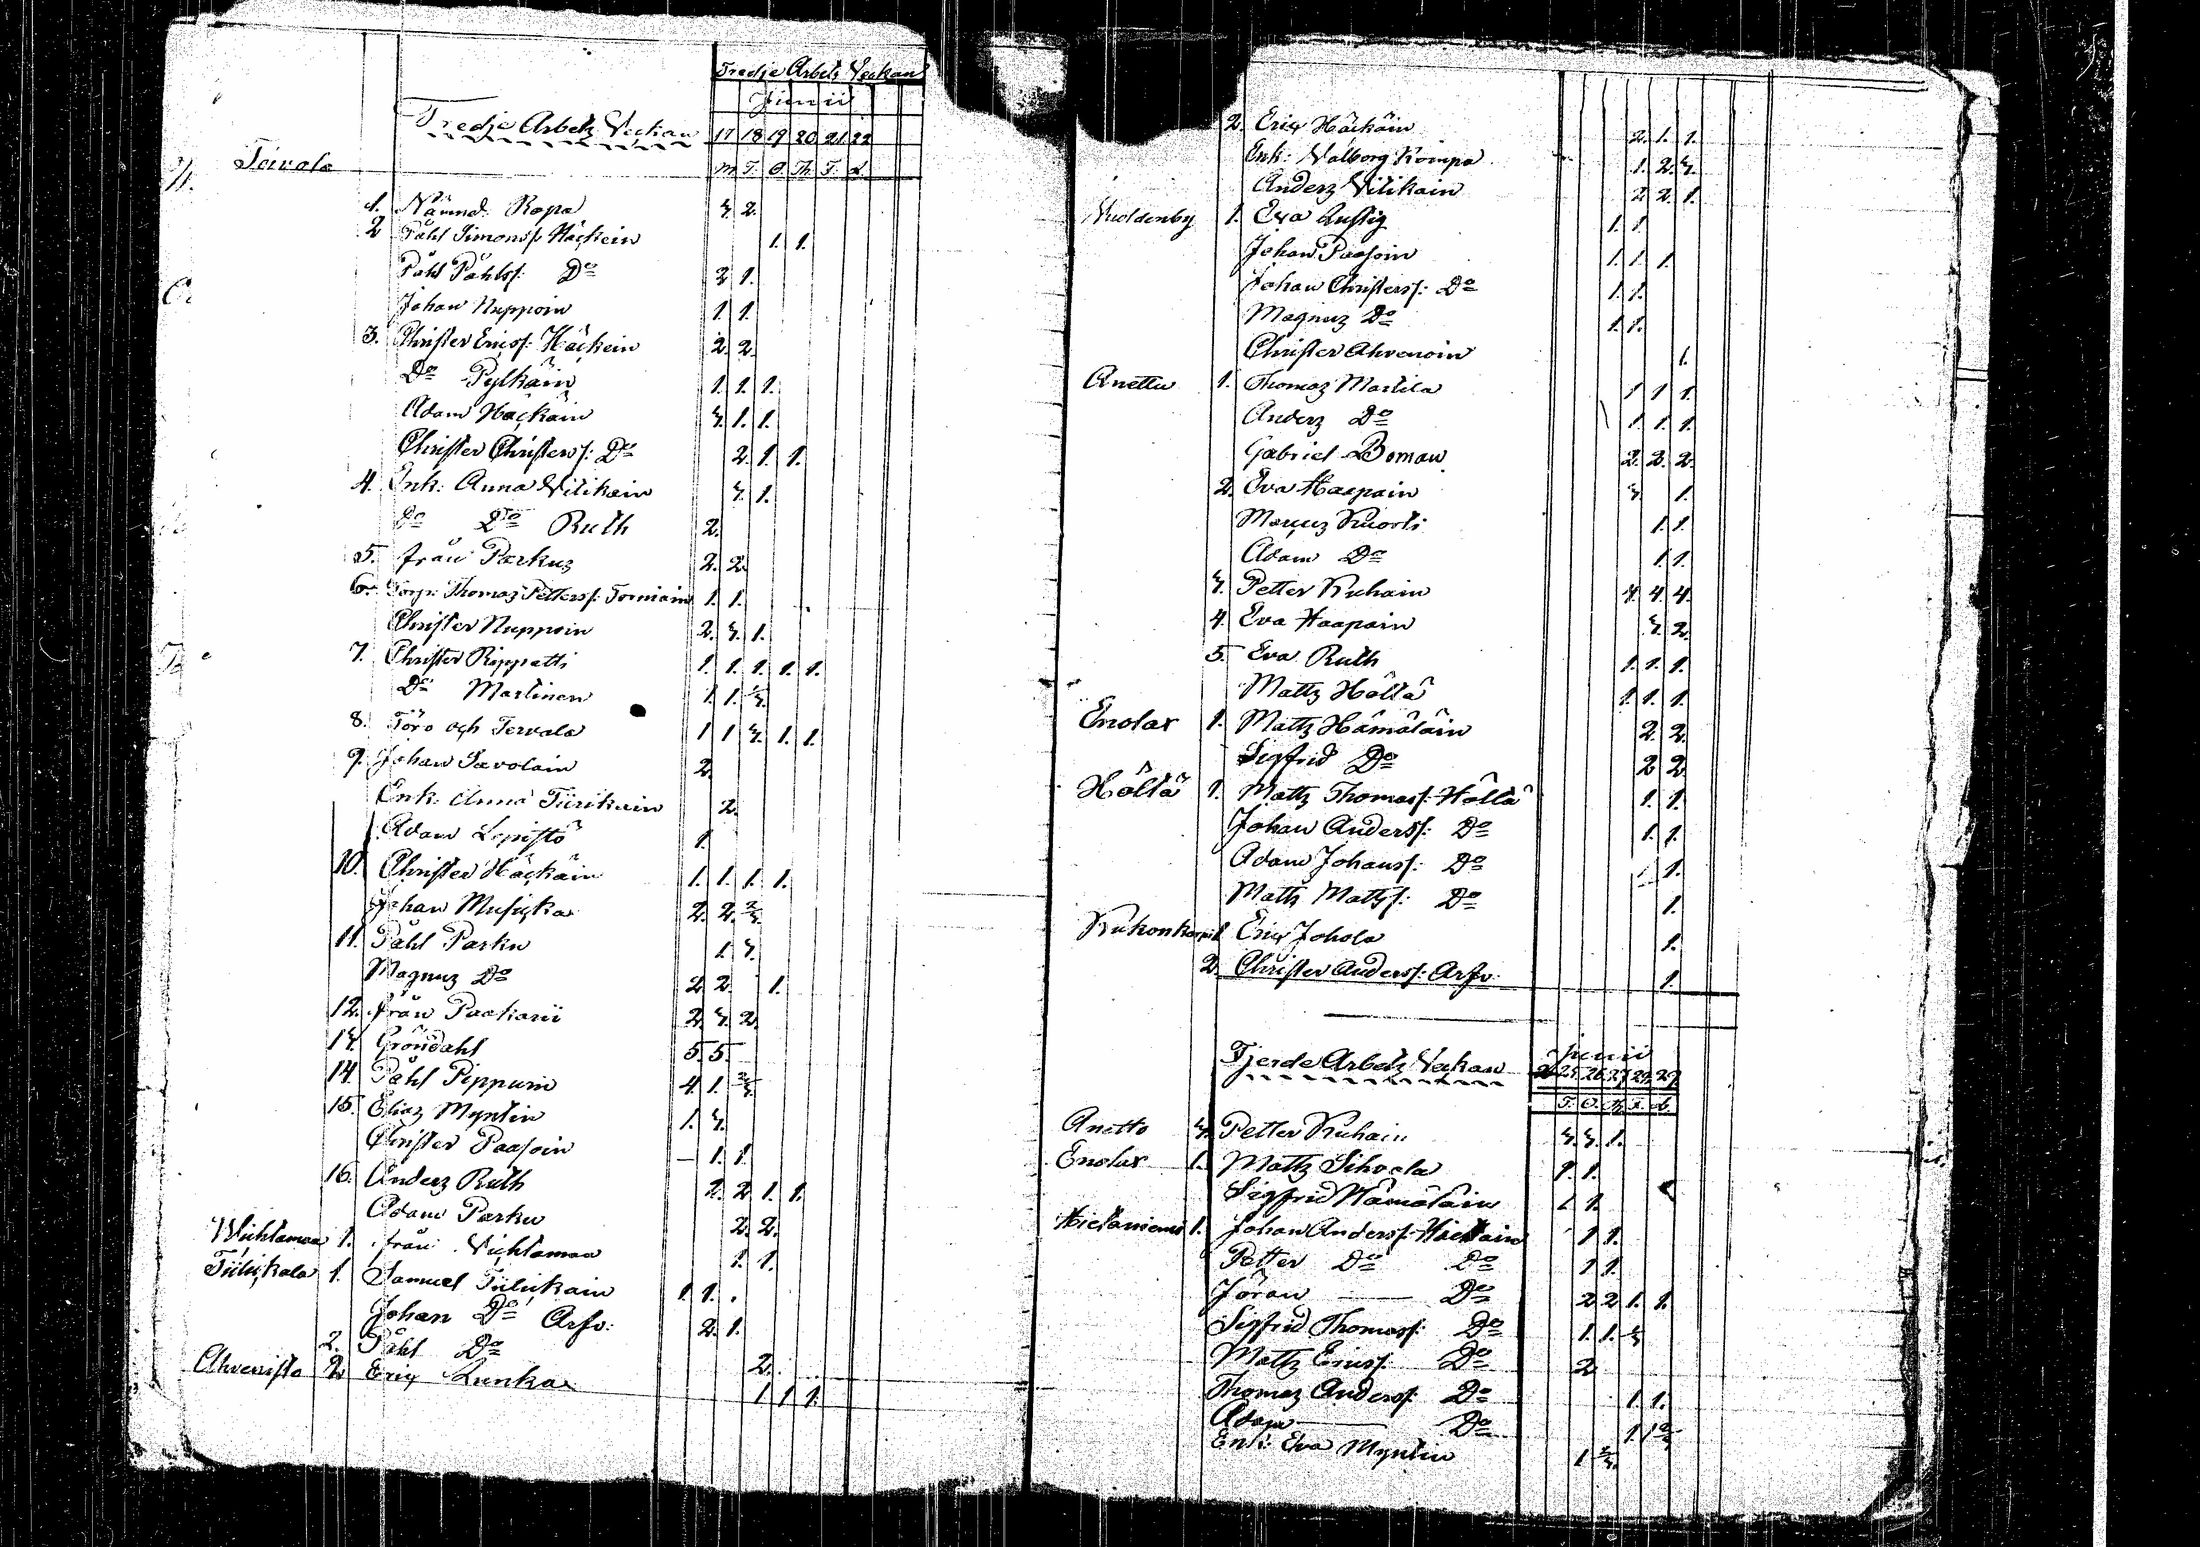 Tredje Arbetz Veckan
Junii
Tredje Arbetz Veckan 17 18 19 20 21 22
M T. O. Th T. L.
Tervola
1. Nämnd. Ropa 3. 2.
2 Påhl Simonss: Häckein 1. 1.
Påhl Påhlss: Do 2 1.
Johan Nuppoin 1 1.
3. Christer Ericss: Häckein 2. 2.
Do Pylkäin 1. 1. 1.
Adam Häckäin 3. 1. 1.
Christer Christerss: Do 2. 1. 1.
4. Enk: Anna Vilikain 3. 1.
Do Do Ruth 2.
5. från Parkuz 2. 2.
6. Torp: Thomaz Petterss: Torniain 1. 1.
Christer Nuppoin 2. 3. 1.
7. Christer Rippatti 1. 1. 1. 1. 1.
Do Martinen 1. 1. 1/3.
8. Törö och Tervala 1 1 3. 1. 1.
9. Johan Savolain 2.
Enk. Anna Tiirikain 2.
Adam Lepistö 1.
10. Christer Häckäin 1. 1. 1. 1.
Johan Musicka 2. 2. 2/3.
11. Påhl Parku 1. 3.
Magnuz Do 2 2. 1.
12. från Paakarii 2. 3. 2.
13. Gröndahl 5. 5.
14. Påhl Pippurin 4. 1. 2/3.
15. Eliaz Myntin 1. 3.
Christer Paasoin 1. 1.
16. Anderz Ruth 2. 2 1. 1.
Adam Parku 2. 2.
Wichtamaa 1. från Vichtamaa 1. 1.
Tiilickala 1. Samuel Tiilickain 1. 1.
Johan Do Arfv: 2. 1.
2. Påhl Do 2.
Ahvenisto 2 Eric Lunka 1 1 1.
2. Eric Häckäin 2. 1. 1.
Enk: Valborg Koinpa 1. 2. 3.
Anderz Vilikain 2 2. 1.
1. Eva 1. 1.
Johan Paasoin 1. 1. 1.
Johan Christerss: Do 1. 1.
Magnuz Do 1. 1.
Christer Ahvenoin 1.
Anettu 1. Thomaz Martila 1 1 1.
Anderz Do 1. 1. 1.
Gabriel Boman 2. 2. 2.
2. Eva Haapain 3. 1.
Kuorti 1. 1.
Adam Do 1. 1.
3. Petter Kuhain 4. 4. 4.
4. Eva Haapain 3. 2.
5. Eva Ruth 1. 1. 1.
Mattz Höltä 1. 1. 1.
Enolax 1. Mattz Hämäläin 2. 2.
Sigfrid Do 2 2
Höltä 1. Mattz Thomass: Höltä 1. 1.
Johan Anderss: Do 1. 1.
Adam Johanss: Do 1.
Mattz Mattzs: Do 1.
1 Eric Johola 1.
2 Christer Anderss: Arfv: 1.
Junii
Fjerde Arbetz Veckan 25. 26. 27 28. 29.
T. O. Th F. L.
Anetto 3. Petter Kuhain 3. 3. 1.
Enolax 1. Mattz Sihvola 1. 1.
Sigfrid Hämäläin 1 1.
Hietaniemi 1. Johan Anderss: Hietain 1 1.
Petter Do Do 1 1.
Jöran Do 2 2 1. 1.
Sigfrid Thomass: Do 1. 1. 3
Mattz Ericss: Do 2
Thomaz Anderss: Do 1. 1.
Adam Do 1. 1 2/3
Enk: Eva Myntin 1 2/3.